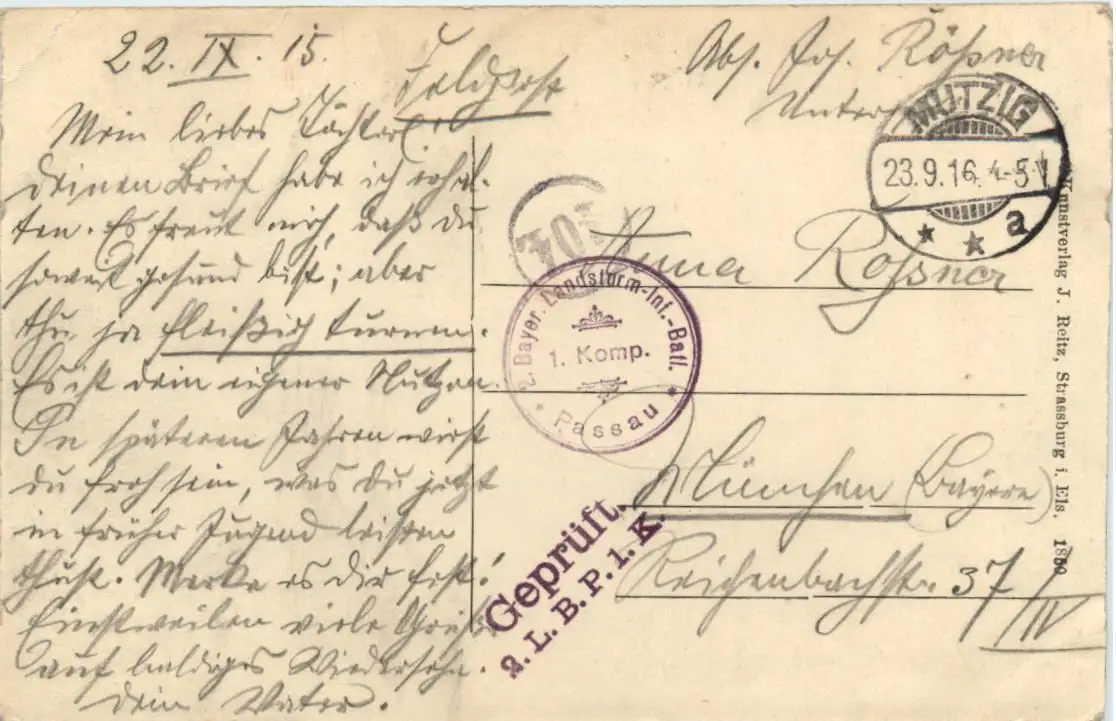 22. IX. 15.
Feldpost
Mein liebes Töchterl!
Deinen Brief habe ich erhal-
ten. Es freut mich, daß du
soweit gesund bist; aber
thu ja fleißig turnen.
Es ist dein eigener Nutzen.
In späteren Jahren wirst
du froh sein, was du jetzt
in früher Jugend leisten
thust. Merke es dir fest!
Einstweilen viele Grüße
auf baldiges Wiedersehn.
Dein Vater.
Abs. Joh. Rößner
MUTZIG
23.9.16. 4-5
* * a
Anna Rößner
2. Bayer. Landsturm-Inf.-Batl.
1. Komp.
* Passau *
München (Bayern)
Reichenbachstr. 37/IV
Geprüft.
2. L. B. P. 1. K.
Kunstverlag J. Reitz, Strassburg i. Els. 1850